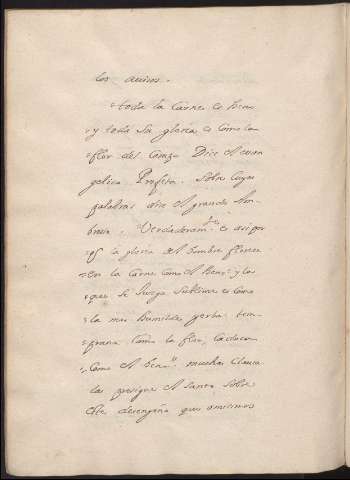 los avisos.
toda la Carne es heno
y toda su gloria es como la
flor del Campo Dice el evan
gelico Propheta. Sobre cuyas
palabras dize el grande Am
brosio. Verdaderam.te es asi por
q la gloria del hombre florece
en la Carne como el heno: y la
que se Juzga sublime es como
la mas humilde yerba: tem
prana como la flor, caduca
como el heno. muchas clausu
las prosigue el Santo sobre
este desengaño que omitimos